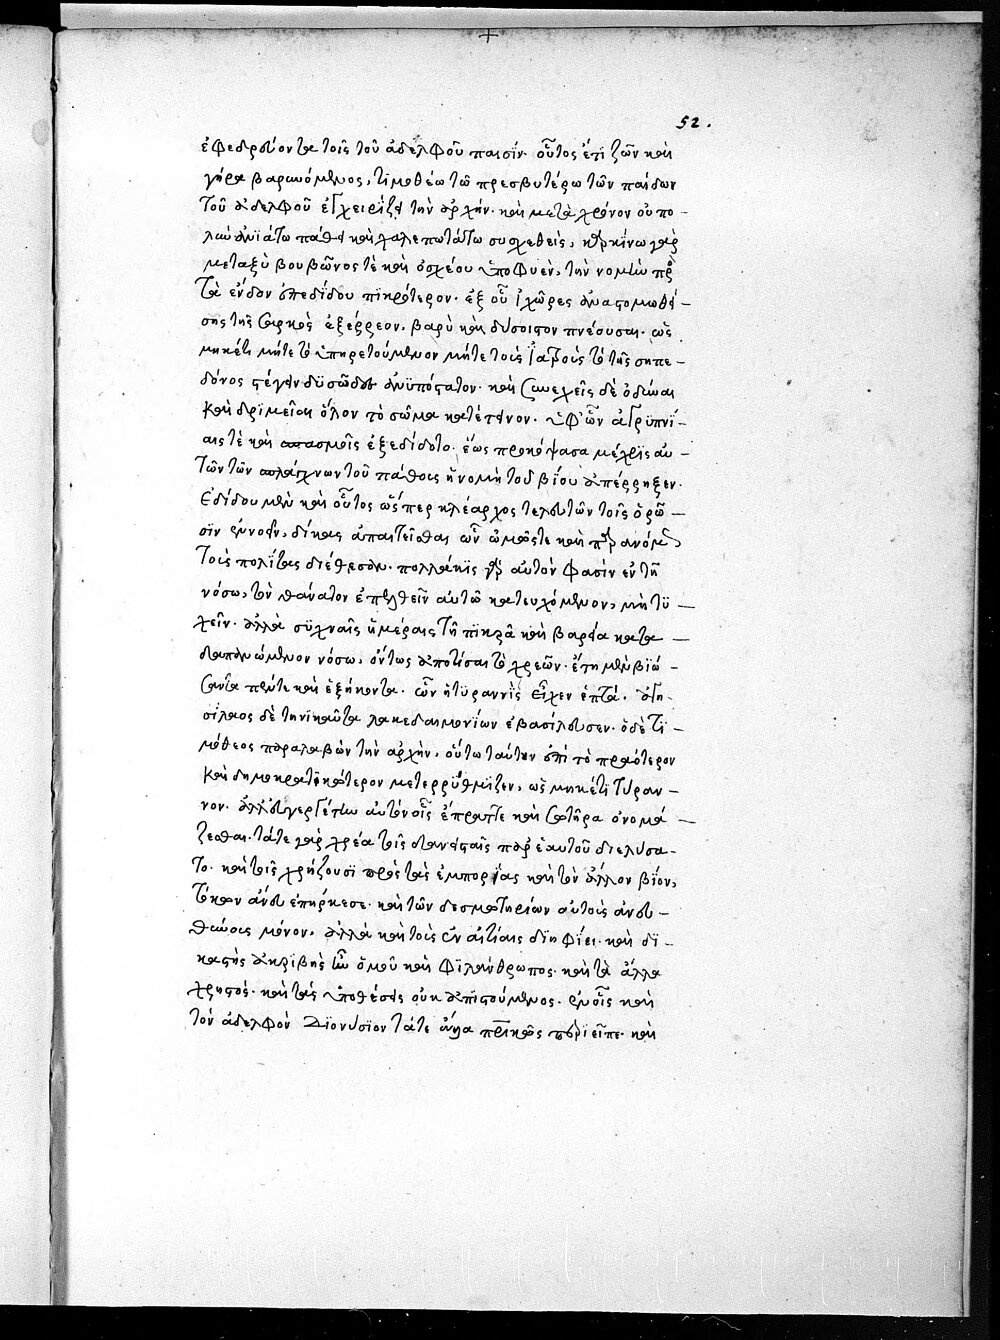 52.
ἐφεδρεύοντα τοῖς τοῦ ἀδελφοῦ παισίν. οὗτος ἔτι ζῶν καὶ
γήρᾳ βαρυνόμενος, τιμοθέω τῶ πρεσβυτέρω τῶν παίδων
τοῦ ἀδελφοῦ ἐγχειρίζει τὴν ἀρχήν. καὶ μετὰ χρόνον οὐ πο-
λὺν ἀνϊάτω πάθει καὶ χαλεπωτάτω συσχεθεὶς, καρκίνω γὰρ
μεταξὺ βουβῶνος τὲ καὶ ὀσχέου ὑποφυὲν, τὴν νομὴν πρὸς
τὰ ἔνδον ἐπεδίδου πϊκρότερον. ἐξ οὗ ἰχῶρες ἀναστομωθεί-
σης τῆς σαρκὸς ἐξέρρεον, βαρὺ καὶ δύσοιστον πνέουσαι. ὡς
μηκέτι μήτε τὸ ὑπηρετούμενον μήτε τοὺς ἰατροὺς τὸ τῆς σηπε-
δόνος στέγειν δϋσῶδες ἀνϋπόστατον. καὶ συνεχεῖς δὲ ὀδύναι
καὶ δριμεῖαι ὅλον τὸ σῶμα κατέτεινον. ὑφ' ὧν ἀγρϋπνί-
αις τὲ καὶ σπασμοῖς ἐξεδίδοτο. ἕως προκόψασα μέχρις αὐ-
τῶν τῶν σπλάγχνων τοῦ πάθους ἡ νομὴ τοῦ βίου ἀπέρρηξεν.
ἐδίδου μὲν καὶ οὗτος ὥσπερ κλέαρχος τελευτῶν τοῖς ὁρῶ-
σϊν ἐννοεῖν, δίκας ἀπαιτεῖσθαι ὧν ὠμῶς τε καὶ παρανόμως
τοὺς πολΐτας διέθεσαν. πολλάκις γὰρ αὐτόν φασὶν ἐν τῆ
νόσω, τὸν θάνατον ἐπελθεῖν αὐτῶ κατευχόμενον, μὴ τϋ-
χεῖν. ἀλλὰ σϋχναῖς ἡμέραις τῆ πϊκρᾶ καὶ βαρεία κατα-
δαπανώμενον νόσω, οὕτως ἀποτίσαι τὸ χρεῶν. ἔτη μὲν βϊώ-
σαντα πέντε καὶ ἑξήκοντα. ὧν ἡ τϋραννὶς εἶχεν ἑπτά. ἀγη-
σίλαος δὲ τηνϊκαῦτα λακεδαιμονίων ἐβασίλευσεν. ὁ δὲ τϊ-
μόθεος παραλαβὼν τὴν ἀρχὴν, οὕτω ταύτην ἐπὶ τὸ πραότερον
καὶ δημοκρατϊκώτερον μετερρΰθμϊζεν, ὡς μηκέτι τύραν-
νον. ἀλλ' εὐεργέτην αὐτὸν οἷς ἔπραττε καὶ σωτῆρα ὀνομά-
ζεσθαι. τά τε γὰρ χρέα τοῖς δανεισταῖς παρ' ἑαυτοῦ διελύσα-
το. καὶ τοῖς χρήζουσϊ πρὸς τὰς ἐμπορίας καὶ τὸν ἄλλον βΐον,
τόκων ἄνευ ἐπήρκεσε. καὶ τῶν δεσμωτηρίων αὐτοὺς ἀνευ-
θύνους μόνον. ἀλλὰ καὶ τοὺς ἐν αἰτίαις δϊηφίει. καὶ δϊ-
καστὴς ἀκρϊβὴς ἦν ὁμοῦ καὶ φϊλάνθρωπος. καὶ τὰ ἄλλα
χρηστός. καὶ τὰς ὑποθέσεις οὐκ ἀπϊστούμενος. ἐν οἷς καὶ
τὸν ἀδελφὸν Διονύσϊον τά τε ἄλλα πατρικῶς περιεῖπε. καὶ